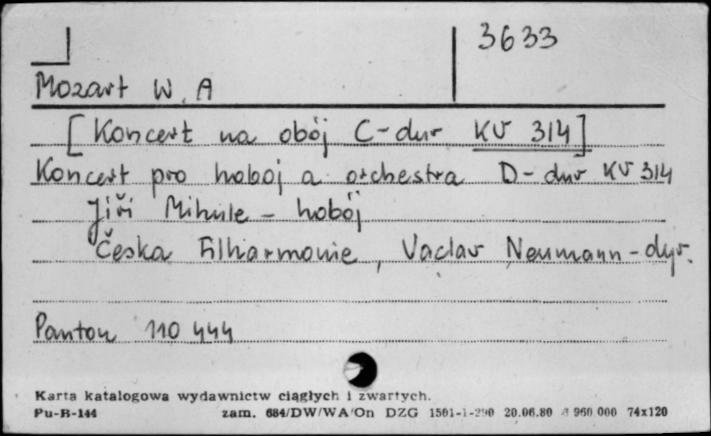 3633
Mozart W. A
[Koncert na obój C-dur KV 314]
Koncert pro hoboj a orchestra D-dur KV 314
Jiři Mihule - hobój
Česka Filharmonie, Vaclav Neumann-dyr.
Panton 110 444
Karta katalogowa wydawnictw ciągłych i zwartych.
Pu-B-144 zam. 684/DW/WA/On DZG 1501-1-290 20.06.80 960 000 74x120